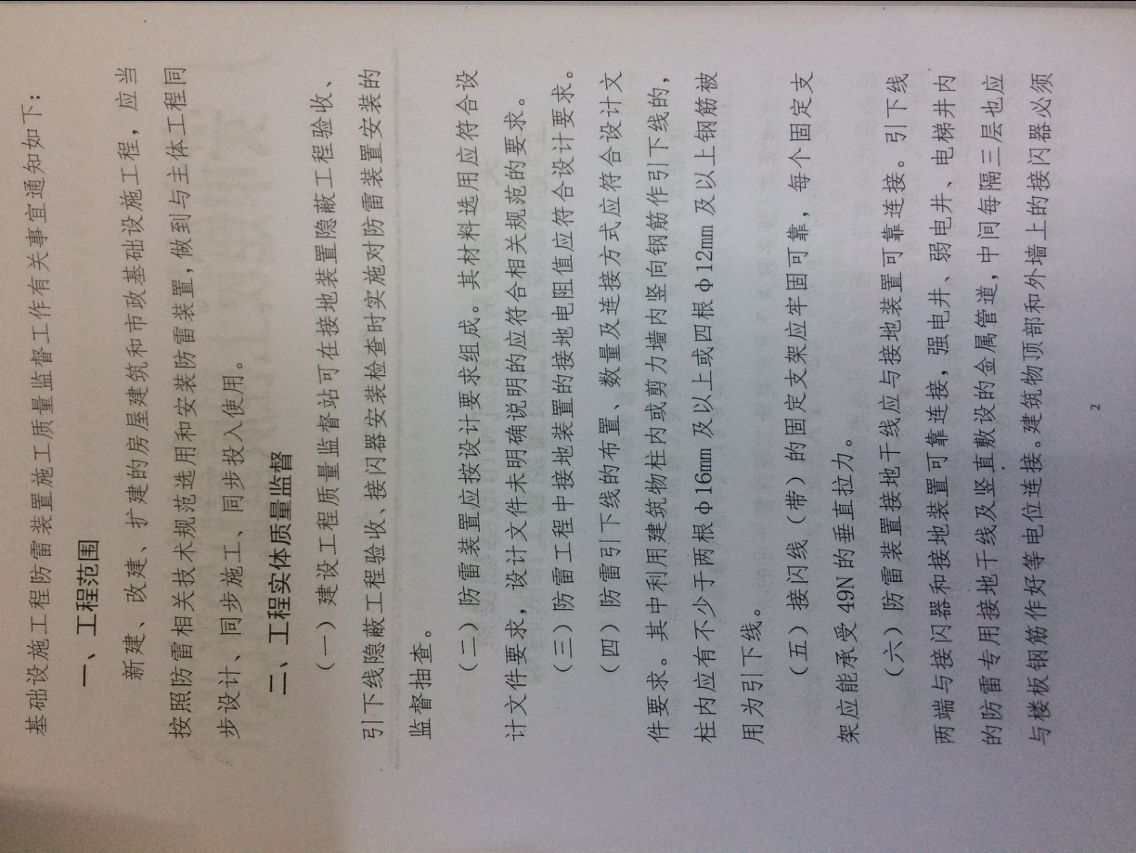 基础设施工程防雷装置施工质量监督工作有关事宜通知如下：
一、工程范围
新建、改建、扩建的房屋建筑和市政基础设施工程，应当
按照防雷相关技术规范选用和安装防雷装置，做到与主体工程同
步设计、同步施工、同步投入使用。
二、工程实体质量监督
（一）建设工程质量监督站可在接地装置隐蔽工程验收、
引下线隐蔽工程验收、接闪器安装检查时实施对防雷装置安装的
监督抽查。
（二）防雷装置应按设计要求组成。其材料选用应符合设
计文件要求，设计文件未明确说明的应符合相关规范的要求。
（三）防雷工程中接地装置的接地电阻值应符合设计要求。
（四）防雷引下线的布置、数量及连接方式应符合设计文
件要求。其中利用建筑物柱内或剪力墙内竖向钢筋作引下线的，
柱内应有不少于两根φ16mm及以上或四根φ12mm及以上钢筋被
用为引下线。
（五）接闪线（带）的固定支架应牢固可靠，每个固定支
架应能承受49N的垂直拉力。
（六）防雷装置接地干线应与接地装置可靠连接。引下线
两端与接闪器和接地装置可靠连接，强电井、弱电井、电梯井内
的防雷专用接地干线及竖直敷设的金属管道，中间每隔三层也应
与楼板钢筋作好等电位连接。建筑物顶部和外墙上的接闪器必须
2